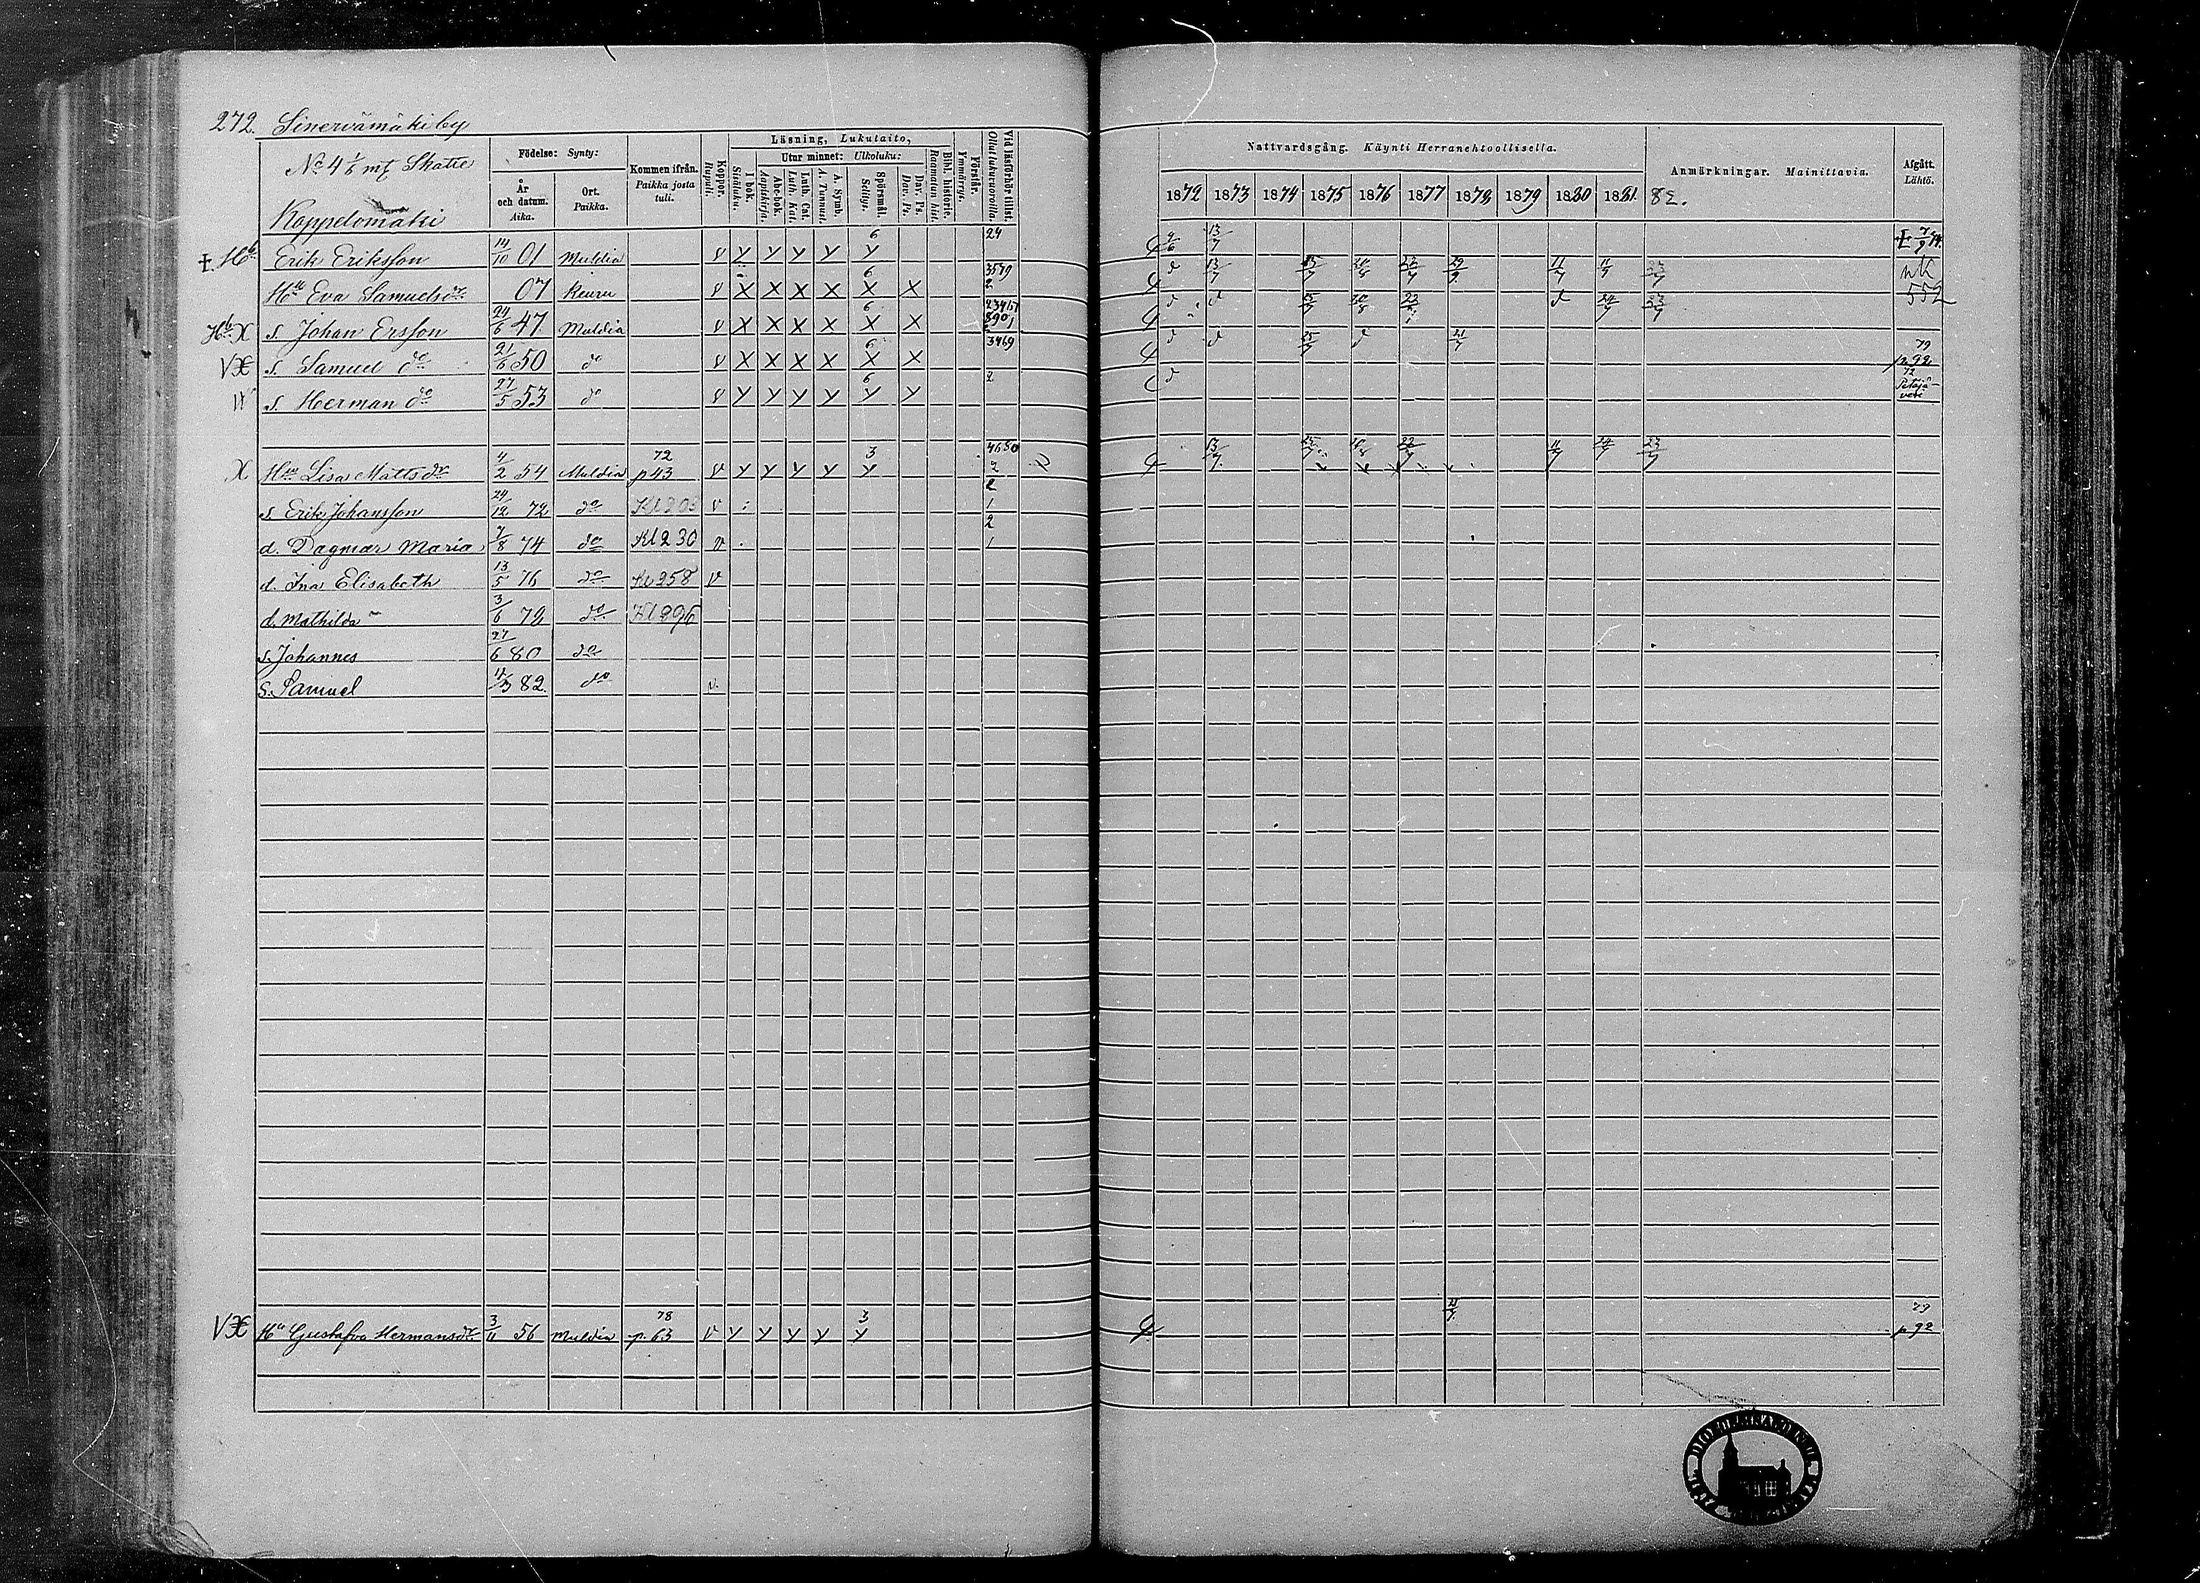 272. Sinervämäki by
No 4 1/6 mt Skatte
Koppelomäki
Födelse: Synty:
År och datum. Aika.
Ort. Paikka.
Kommen ifrån. Paikka josta tuli.
Koppor. Rupuli.
Läsning, Lukutaito,
I bok. Sisäluku.
Utur minnet: Ulkoluku:
Abc-bok. Aapiskirja.
Luth. Cat. Luth. Kat.
A. Symb. A. Tunnust.
Spörsmål. Selitys.
Dav. Ps. Dav. Ps.
Bibl. historie. Raamatun hist.
Förstår. Ymmärrys.
Vid läsförhör tillst. Ollut lukuvuoroilla.
Nattvardsgång. Käynti Herranehtoollisella.
1872 1873 1874 1875 1876 1877 1878 1879 1880 1881 82.
Anmärkningar. Mainittavia.
Afgått. Lähtö.
Hb Erik Eriksson 14/10 01 Muldia v y y y y 6 y 24 9/6 13/7
Hu Eva Samuelsdr 07 Keuru v X X X X 6 X X 3579 d 13/7 25/7 11/7 11/7 nk 552
Hb X s. Johan Ersson 24/6 47 Muldia v X X X X 6 X X d d 25/7 d 24/7 23/7
VX s. Samuel do 21/6 50 do v X X X X 6 X X 3469 d d 25/7 d 21/7 79 p 92
s. Herman do 27/5 53 do v y y y y 6 y y 2 d 72 Petäjävesi
X Hu Lisa Mattsdr 4/2 54 Muldia 72 p 43 v y y y y 3 y 4680 13/7 25/7 22/7 11/7 24/7 23/7
s. Erik Johansson 24/12 72 do Kl 203 v
d. Dagmar Maria 7/8 74 do Kl 230 v
d. Ina Elisabeth 13/5 76 do Kl 258 v
d. Mathilda 3/6 78 do
s. Johannes 27/6 80 do
s. Samuel 82 do v.
VX Hu Gustafva Hermansdr 3/11 56 Muldia 78 p. 63 v y y y y 3 y 79 p 92